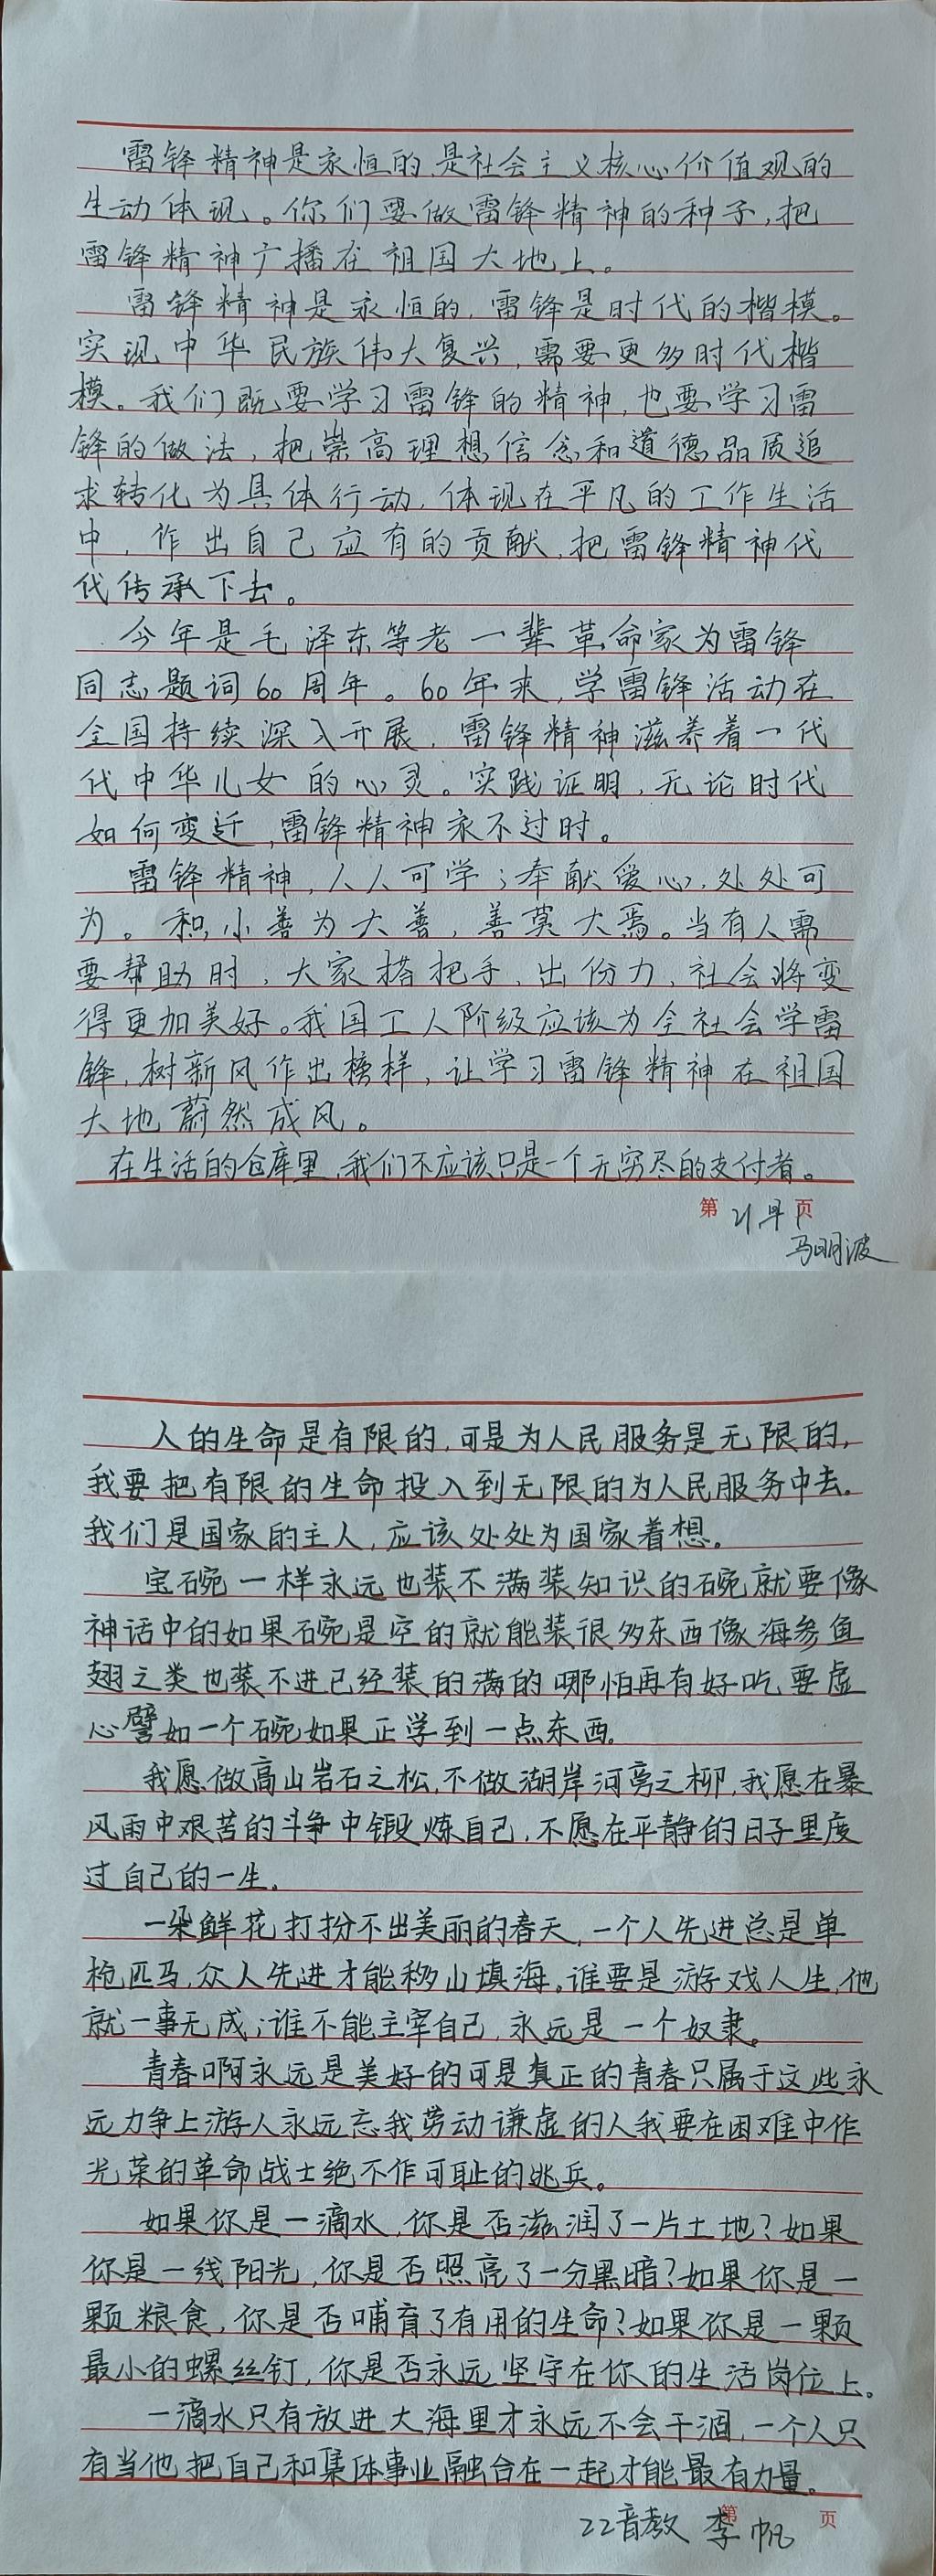 雷锋精神是永恒的,是社会主义核心价值观的
生动体现。你们要做雷锋精神的种子,把
雷锋精神广播在祖国大地上。
雷锋精神是永恒的,雷锋是时代的楷模。
实现中华民族伟大复兴,需要更多时代楷
模。我们既要学习雷锋的精神,也要学习雷
锋的做法,把崇高理想信念和道德品质追
求转化为具体行动,体现在平凡的工作生活
中,作出自己应有的贡献,把雷锋精神代
代传承下去。
今年是毛泽东等老一辈革命家为雷锋
同志题词60周年。60年来,学雷锋活动在
全国持续深入开展,雷锋精神滋养着一代
代中华儿女的心灵。实践证明,无论时代
如何变迁,雷锋精神永不过时。
雷锋精神,人人可学;奉献爱心,处处可
为。积小善为大善,善莫大焉。当有人需
要帮助时,大家搭把手、出份力,社会将变
得更加美好。我国工人阶级应该为全社会学雷
锋,树新风作出榜样,让学习雷锋精神在祖国
大地蔚然成风。
在生活的仓库里,我们不应该只是一个无穷尽的支付者。
第 21早1 页
马明波
人的生命是有限的,可是为人民服务是无限的,
我要把有限的生命投入到无限的为人民服务中去。
我们是国家的主人,应该处处为国家着想。
宝碗一样永远也装不满装知识的碗就要像
神话中的如果碗是空的就能装很多东西像海参鱼
翅之类也装不进已经装的满的哪怕再有好吃要虚
心譬如一个碗如果正学到一点东西。
我愿做高山岩石之松,不做湖岸河旁之柳,我愿在暴
风雨中艰苦的斗争中锻炼自己,不愿在平静的日子里度
过自己的一生。
一朵鲜花打扮不出美丽的春天,一个人先进总是单
枪匹马,众人先进才能移山填海。谁要是游戏人生,他
就一事无成;谁不能主宰自己,永远是一个奴隶。
青春啊永远是美好的可是真正的青春只属于这些永
远力争上游人永远忘我劳动谦虚的人我要在困难中作
光荣的革命战士绝不作可耻的逃兵。
如果你是一滴水,你是否滋润了一片土地?如果
你是一线阳光,你是否照亮了一分黑暗?如果你是一
颗粮食,你是否哺育了有用的生命?如果你是一颗
最小的螺丝钉,你是否永远坚守在你的生活岗位上。
一滴水只有放进大海里才永远不会干涸,一个人只
有当他把自己和集体事业融合在一起才能最有力量。
第 页
22音教 李帆